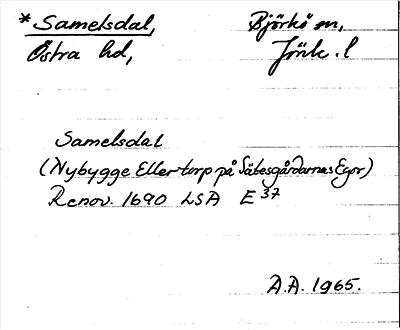 * Samelsdal, Björkö sn,
Östra hd, Jönk. l
Samelsdal
(Nybygge Eller torp på Sätesgårdarnas Egor)
Renov. 1690 LSA E 37
A.A. 1965.